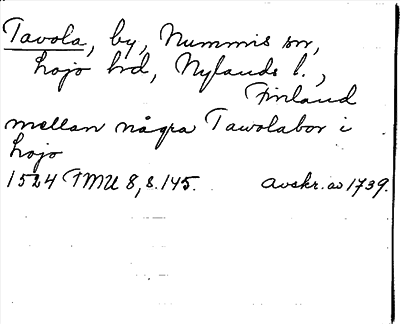 Tavola, by, Nummis sn,
Lojo hd, Nylands l.,
Finland
mellan några Tawolabor i
Lojo
1524 TMU 8, s. 145. avskr. av 1739.